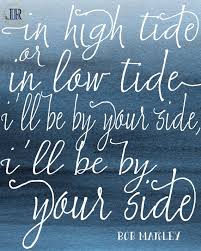 JR
in high tide
or
in low tide
i'll be by your side,
i'll be by
your side
BOB MARLEY